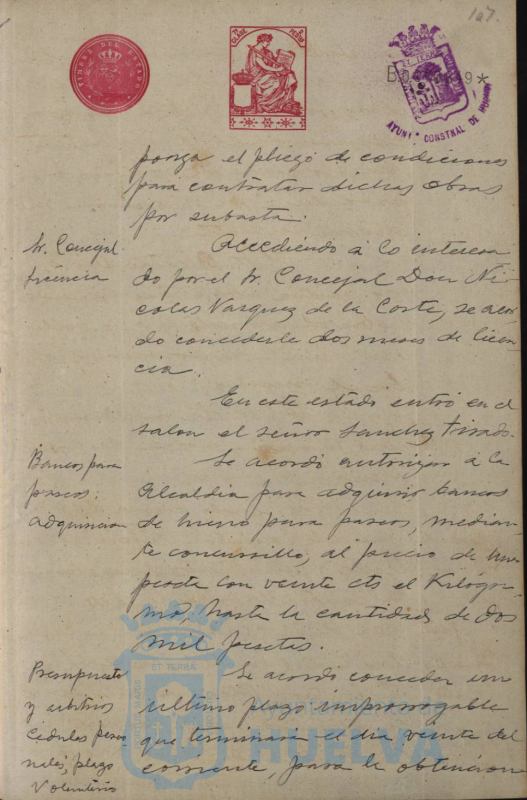 107.
TIMBRE DEL ESTADO
CLASE
AYUNT. CONSTNAL. DE HUELVA
ponga el pliego de condiciones
para contratar dichas obras
por subasta.
Sr. Concejal
licencia
Accediendo á lo interesa
do por el Sr. Concejal Don Ni-
colas Vasquez de la Corte, se acor
do concederle dos meses de licen
cia.
En este estado entró en el
salon el señor Sanchez Tirado.
Bancos para
paseos:
adquisicion
Se acordó autorizar á la
Alcaldia para adquirir bancos
de hierro para paseos, median
te concursillo, al precio de una
peseta con veinte cts el Kilógra
mo, hasta la cantidad de dos
mil pesetas.
Presupuesto
y arbitrios
Cédulas perso
nales, plazo
voluntario
Se acordó conceder un
último plazo improrrogable
que terminará el dia veinte del
corriente, para la obtencion
HUELVA